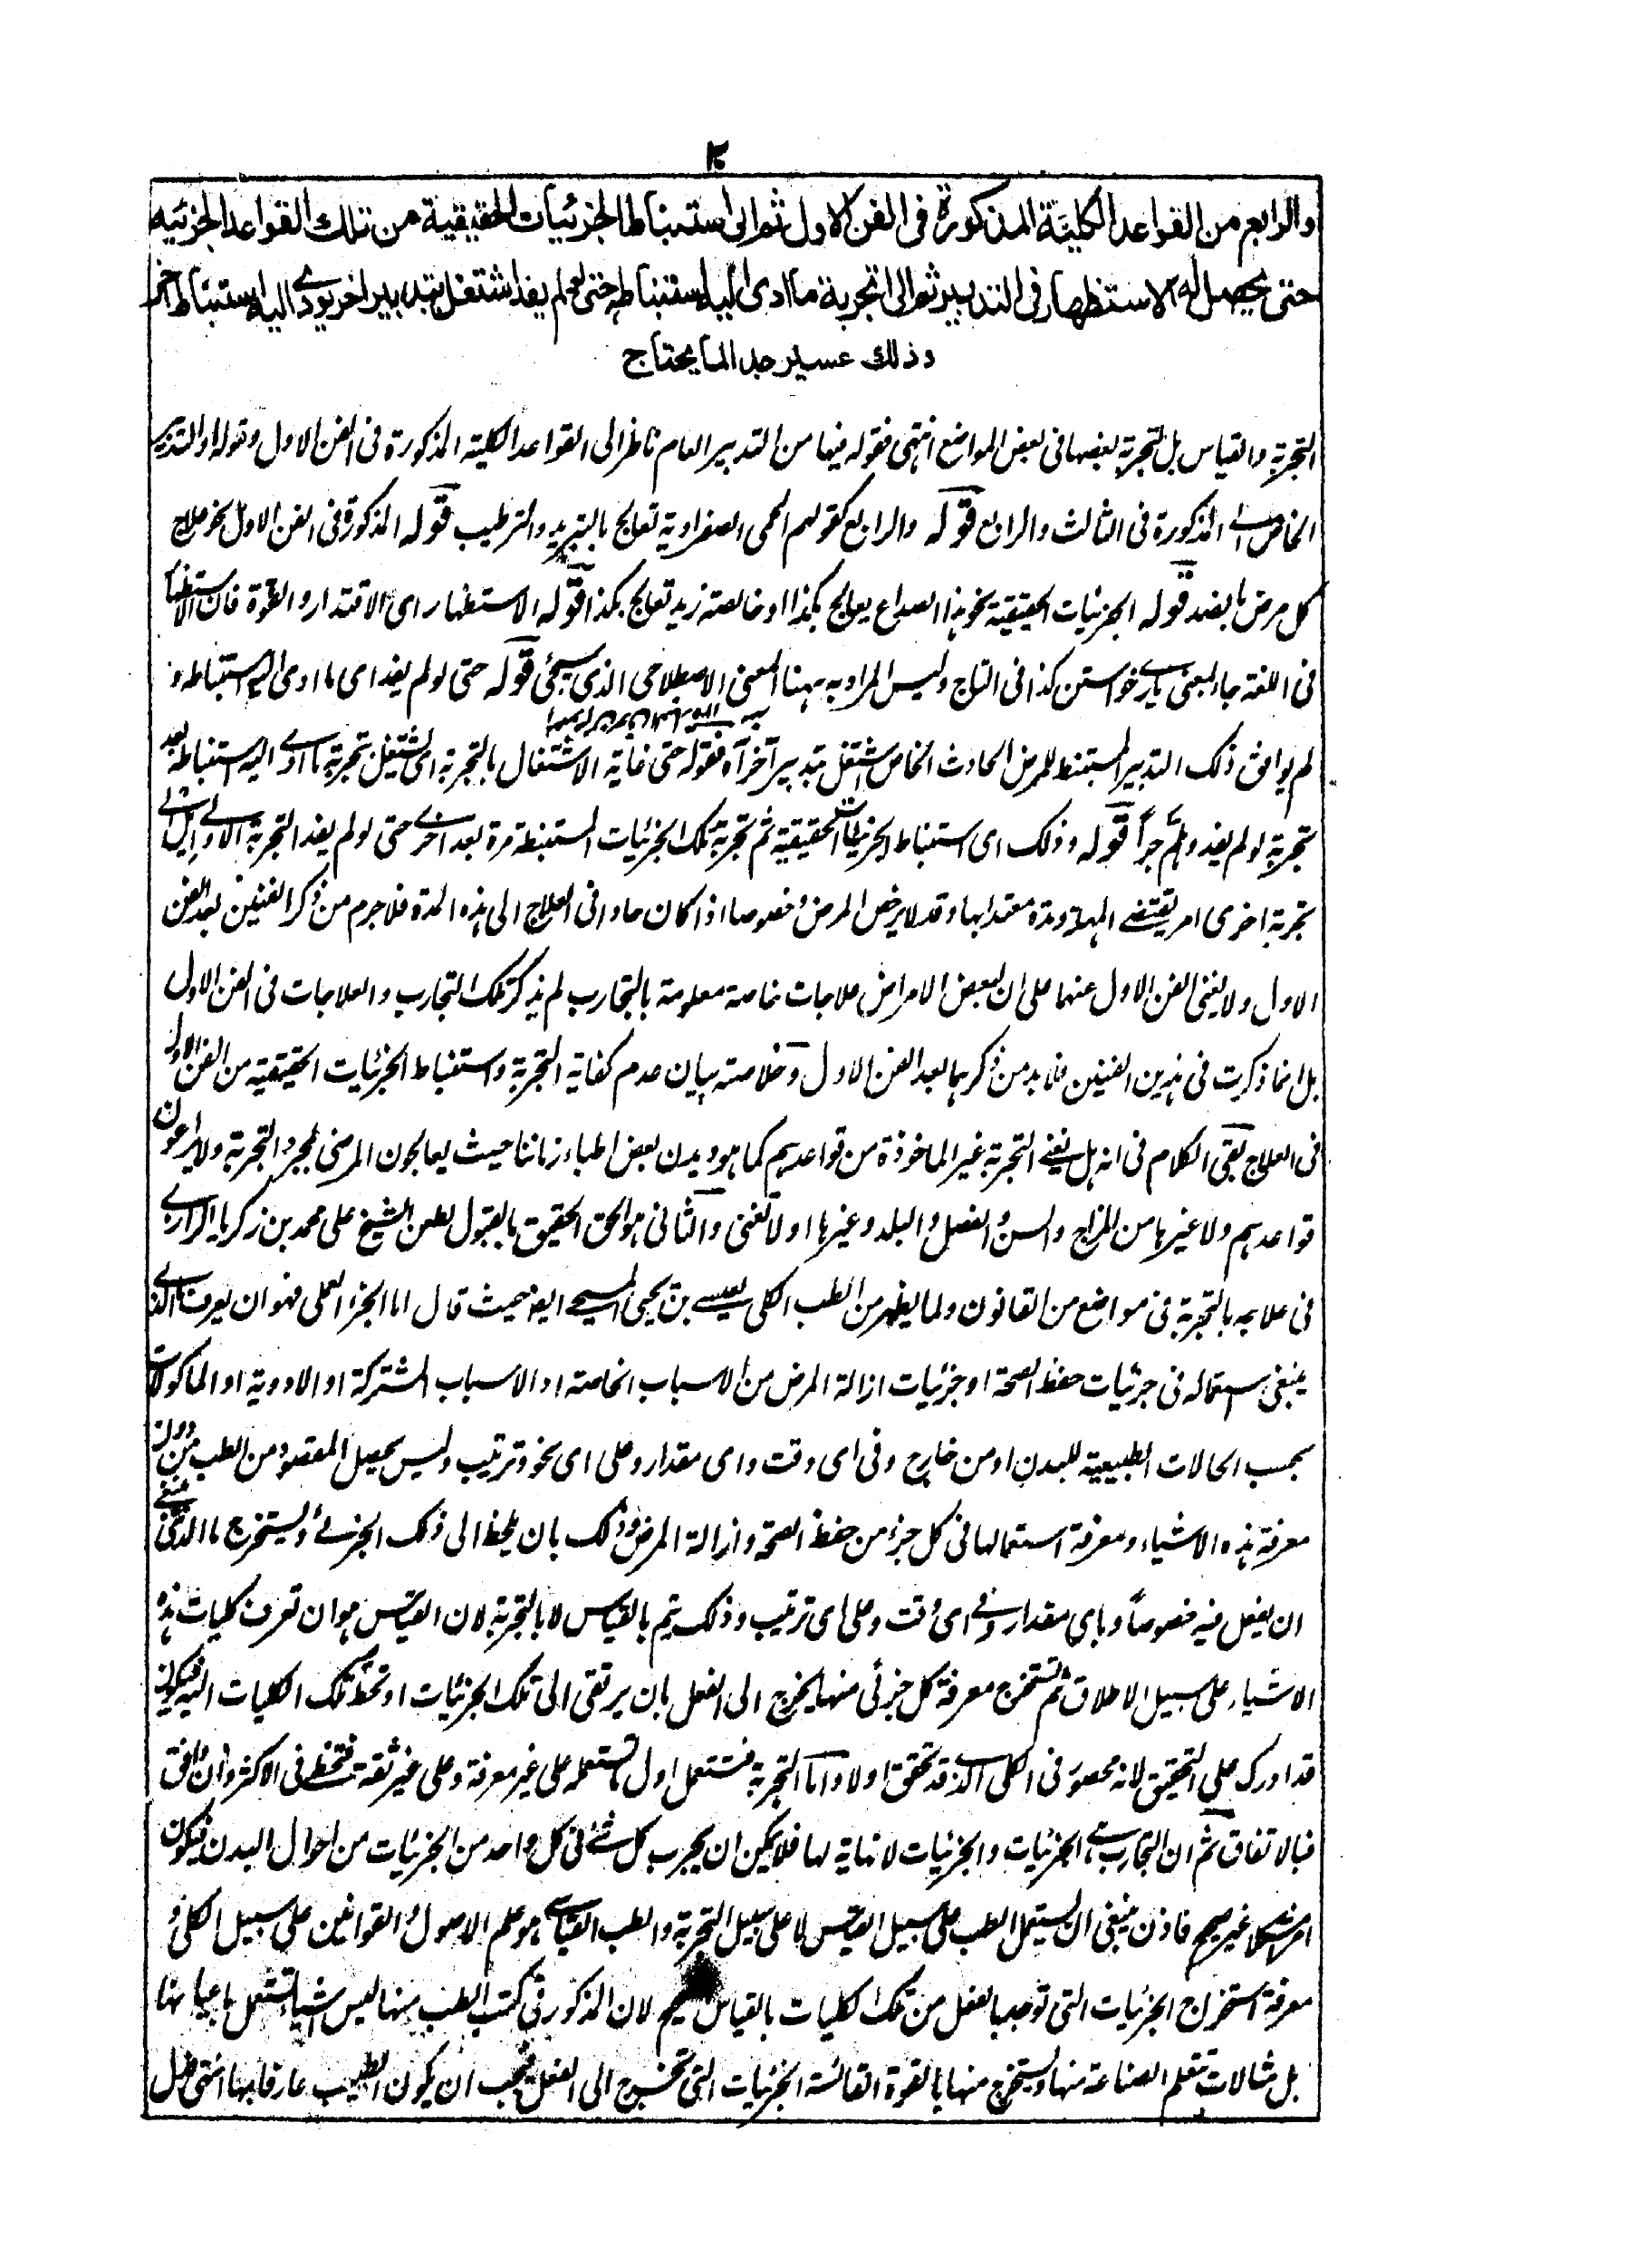 والرابع من القواعد الكلية المذكورة في الفن الاول ثم الى استنباط الجزئيات الحقيقية من تلك القواعد الجزئيه
حتى يحصل له الاستظهار في التدبير ثم الى تجربة ما ادى اليه استنباطه حتى لو لم يفد اشتغل بتدبير اخر يودي اليه استنباط اخر
وذلك عسير جدا لما يحتاج
التجربة والقياس بل التجربة بعضها فى بعض المواضع انتهى فقوله فيها من التدبير العام ناظر الى القواعد الكلية المذكورة فى الفن الاول وقوله او التدبير
الخاص الى المذكورة فى الثالث والرابع قوله والرابع كقولهم الحمى الصفراوية تعالج بالتبريد والترطيب قوله المذكورة فى الفن الاول نحو علاج
كل مرض بالضد قوله الجزئيات الحقيقية نحو هذا الصداع يعالج بكذا او خالصته زيد تعالج بكذا قوله الاستظهار اى الاقتدار والقوة فان الاستظهار
فى اللغة جاء لمعنى يارى خواستن كذا فى التاج وليس المراد به ههنا المعنى الاصطلاحى الذى سيجئ قوله حتى لو لم يفد اى ما ادى اليه استنباطه و
لم يوافق ذلك التدبير المستنبط للمرض الحادث الخاص اشتغل بتدبير آخر آه فقوله حتى غاية الاشتغال بالتجربة اى اشتغل تجربة ما ادى اليه استنباطه بعد
تجربة لو لم يفد وهلم جرا قوله وذلك اى استنباط الجزئيات الحقيقية ثم تجربة تلك الجزئيات المستنبطة مرة بعد اخرى حتى لو لم يفد التجربة الاولى
تجربة اخرى امر يقتضى المهلة ومدة معتدا بها وقد لا يرخص المرض خصوصا اذا كان حادا فى العلاج الى هذه المدة فلا جرم من ذكر الفنين بعد الفن
الاول ولا يغنى الفن الاول عنها على ان لبعض الامراض علاجات خاصة معلومة بالتجارب لم يذكر تلك التجارب والعلاجات فى الفن الاول
بل انما ذكرت فى هذين الفنين فلا بد من ذكرهما بعد الفن الاول وخلاصته بيان عدم كفاية التجربة واستنباط الجزئيات الحقيقية من الفن الاول
فى العلاج بقى الكلام فى انه هل يغنى التجربة غير الماخوذة من قواعدهم كما هو ديدن بعض اطباء زماننا حيث يعالجون المرضى لمجرد التجربة ولا يراعون
قواعدهم ولا غيرها من المزاج والسن والفصل والبلد وغيرها اولا تغنى والثانى هو الحق الحقيق بالقبول لطعن الشيخ على محمد بن زكريا الرازى
فى علاجه بالتجربة فى مواضع من القانون ولما يظهر من الطب الكلى لعيسى بن يحيى المسيحى ايضا حيث قال اما الجزء العملى فهو ان يعرف الذى
ينبغى استعماله فى جزئيات حفظ الصحة او جزئيات ازالة المرض من الاسباب الخاصة او الاسباب المشتركة او الادوية او الماكولات
بحسب الحالات الطبيعية للبدن او من خارج وفى اى وقت واى مقدار وعلى اى نحو وترتيب وليس يحصل المقصود من الطب من دون
معرفة هذه الاشياء ومعرفة استعمالها فى كل جزء من حفظ الصحة وازالة المرض وذلك بان يلحظ الى ذلك الجزئى ويستخرج ما الذى ينبغى
ان يفعل فيه خصوصا وباى مقدار وفى اى وقت وعلى اى ترتيب وذلك يتم بالقياس لا بالتجربة لان القياس هو ان تعرف كليات هذه
الاشياء على سبيل الاطلاق ثم تستخرج معرفة كل جزئى منها يخرج الى الفعل بان يرتقى الى تلك الجزئيات او تحط تلك الكليات اليه فيكون
قد ادرك على التحقيق لانه محصور فى الكلى الذى قد تحقق اولا واما التجربة فتستعمل اول ما تستعمله على غير معرفة وعلى غير ثقة فتخطئ فى الاكثر وان وافق
فبالاتفاق ثم ان التجارب فى الجزئيات والجزئيات لا نهاية لها فلا يمكن ان يجرب كل شئ فى كل واحد من الجزئيات من احوال البدن فيكون
امرا مشكلا غير صحيح فاذن ينبغى ان يستعمل الطب على سبيل القياس لا على سبيل التجربة والطب القياسى هو علم الاصول والقوانين على سبيل الكلى و
معرفة استخراج الجزئيات التى توجد بالفعل من تلك الكليات بالقياس لان المذكور فى كتب الطب منها ليس اشياء تستعمل باعيانها
بل مثالات تتعلم الصناعة منها ويستخرج منها بالقوة القائسة الجزئيات التى تخرج الى الفعل فيجب ان يكون الطبيب عارفا بها انتهى